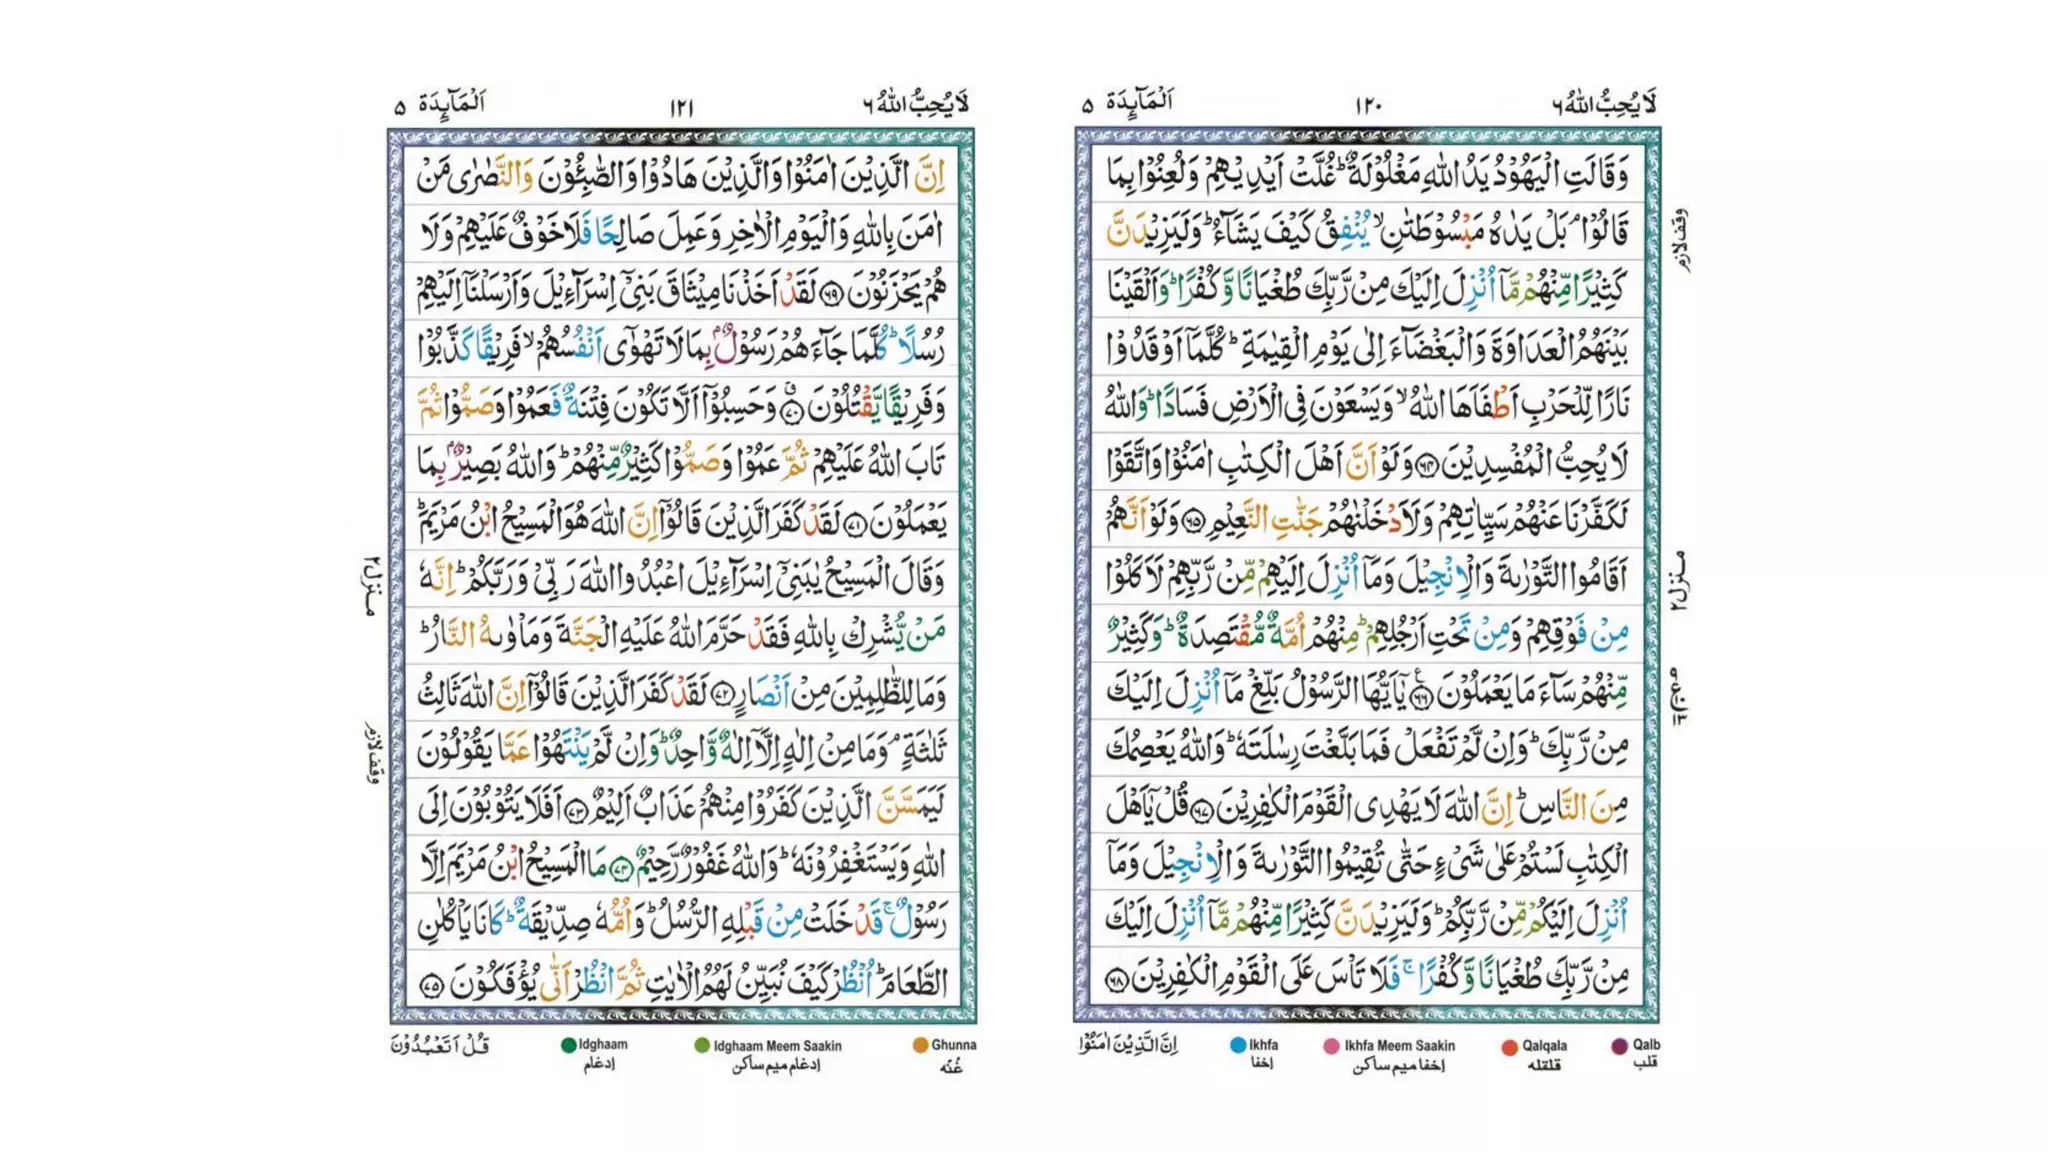 لَا يُحِبُّ اللهُ ٦
١٢٠
اَلْمَآئِدَة ٥
وَقَالَتِ الْيَهُوْدُ يَدُ اللهِ مَغْلُوْلَةٌ ؕ غُلَّتْ اَيْدِيْهِمْ وَلُعِنُوْا بِمَا
قَالُوْا ۘ بَلْ يَدٰهُ مَبْسُوْطَتٰنِ ۙ يُنْفِقُ كَيْفَ يَشَآءُ ؕ وَلَيَزِيْدَنَّ
كَثِيْرًا مِّنْهُمْ مَّآ اُنْزِلَ اِلَيْكَ مِنْ رَّبِّكَ طُغْيَانًا وَّكُفْرًا ؕ وَاَلْقَيْنَا
بَيْنَهُمُ الْعَدَاوَةَ وَالْبَغْضَآءَ اِلٰى يَوْمِ الْقِيٰمَةِ ؕ كُلَّمَآ اَوْقَدُوْا
نَارًا لِّلْحَرْبِ اَطْفَاَهَا اللهُ ۙ وَيَسْعَوْنَ فِى الْاَرْضِ فَسَادًا ؕ وَاللهُ
لَا يُحِبُّ الْمُفْسِدِيْنَ ﴿٦٤﴾ وَلَوْ اَنَّ اَهْلَ الْكِتٰبِ اٰمَنُوْا وَاتَّقَوْا
لَكَفَّرْنَا عَنْهُمْ سَيِّاٰتِهِمْ وَلَاَدْخَلْنٰهُمْ جَنّٰتِ النَّعِيْمِ ﴿٦٥﴾ وَلَوْ اَنَّهُمْ
اَقَامُوا التَّوْرٰىةَ وَالْاِنْجِيْلَ وَمَآ اُنْزِلَ اِلَيْهِمْ مِّنْ رَّبِّهِمْ لَاَكَلُوْا
مِنْ فَوْقِهِمْ وَمِنْ تَحْتِ اَرْجُلِهِمْ ؕ مِنْهُمْ اُمَّةٌ مُّقْتَصِدَةٌ ؕ وَكَثِيْرٌ
مِّنْهُمْ سَآءَ مَا يَعْمَلُوْنَ ﴿٦٦﴾ يٰۤاَيُّهَا الرَّسُوْلُ بَلِّغْ مَآ اُنْزِلَ اِلَيْكَ
مِنْ رَّبِّكَ ؕ وَاِنْ لَّمْ تَفْعَلْ فَمَا بَلَّغْتَ رِسٰلَتَهٗ ؕ وَاللهُ يَعْصِمُكَ
مِنَ النَّاسِ ؕ اِنَّ اللهَ لَا يَهْدِى الْقَوْمَ الْكٰفِرِيْنَ ﴿٦٧﴾ قُلْ يٰۤاَهْلَ
الْكِتٰبِ لَسْتُمْ عَلٰى شَىْءٍ حَتّٰى تُقِيْمُوا التَّوْرٰىةَ وَالْاِنْجِيْلَ وَمَآ
اُنْزِلَ اِلَيْكُمْ مِّنْ رَّبِّكُمْ ؕ وَلَيَزِيْدَنَّ كَثِيْرًا مِّنْهُمْ مَّآ اُنْزِلَ اِلَيْكَ
مِنْ رَّبِّكَ طُغْيَانًا وَّكُفْرًا ۚ فَلَا تَاْسَ عَلَى الْقَوْمِ الْكٰفِرِيْنَ ﴿٦٨﴾
وقف لازم
منزل ٢
Qalb
قلب
Qalqala
قلقله
Ikhfa Meem Saakin
اخفا میم ساکن
Ikhfa
اخفا
اِنَّ الَّذِيْنَ اٰمَنُوْا
لَا يُحِبُّ اللهُ ٦
١٢١
اَلْمَآئِدَة ٥
اِنَّ الَّذِيْنَ اٰمَنُوْا وَالَّذِيْنَ هَادُوْا وَالصّٰبِـُٔوْنَ وَالنَّصٰرٰى مَنْ
اٰمَنَ بِاللهِ وَالْيَوْمِ الْاٰخِرِ وَعَمِلَ صَالِحًا فَلَا خَوْفٌ عَلَيْهِمْ وَلَا
هُمْ يَحْزَنُوْنَ ﴿٦٩﴾ لَقَدْ اَخَذْنَا مِيْثَاقَ بَنِىْٓ اِسْرَآءِيْلَ وَاَرْسَلْنَآ اِلَيْهِمْ
رُسُلًا ؕ كُلَّمَا جَآءَهُمْ رَسُوْلٌۢ بِمَا لَا تَهْوٰٓى اَنْفُسُهُمْ ۙ فَرِيْقًا كَذَّبُوْا
وَفَرِيْقًا يَّقْتُلُوْنَ ﴿٧٠﴾ وَحَسِبُوْٓا اَلَّا تَكُوْنَ فِتْنَةٌ فَعَمُوْا وَصَمُّوْا ثُمَّ
تَابَ اللهُ عَلَيْهِمْ ثُمَّ عَمُوْا وَصَمُّوْا كَثِيْرٌ مِّنْهُمْ ؕ وَاللهُ بَصِيْرٌۢ بِمَا
يَعْمَلُوْنَ ﴿٧١﴾ لَقَدْ كَفَرَ الَّذِيْنَ قَالُوْٓا اِنَّ اللهَ هُوَ الْمَسِيْحُ ابْنُ مَرْيَمَ ؕ
وَقَالَ الْمَسِيْحُ يٰبَنِىْٓ اِسْرَآءِيْلَ اعْبُدُوا اللهَ رَبِّىْ وَرَبَّكُمْ ؕ اِنَّهٗ
مَنْ يُّشْرِكْ بِاللهِ فَقَدْ حَرَّمَ اللهُ عَلَيْهِ الْجَنَّةَ وَمَاْوٰىهُ النَّارُ ؕ
وَمَا لِلظّٰلِمِيْنَ مِنْ اَنْصَارٍ ﴿٧٢﴾ لَقَدْ كَفَرَ الَّذِيْنَ قَالُوْٓا اِنَّ اللهَ ثَالِثُ
ثَلٰثَةٍ ۘ وَمَا مِنْ اِلٰهٍ اِلَّآ اِلٰهٌ وَّاحِدٌ ؕ وَاِنْ لَّمْ يَنْتَهُوْا عَمَّا يَقُوْلُوْنَ
لَيَمَسَّنَّ الَّذِيْنَ كَفَرُوْا مِنْهُمْ عَذَابٌ اَلِيْمٌ ﴿٧٣﴾ اَفَلَا يَتُوْبُوْنَ اِلَى
اللهِ وَيَسْتَغْفِرُوْنَهٗ ؕ وَاللهُ غَفُوْرٌ رَّحِيْمٌ ﴿٧٤﴾ مَا الْمَسِيْحُ ابْنُ مَرْيَمَ اِلَّا
رَسُوْلٌ ۚ قَدْ خَلَتْ مِنْ قَبْلِهِ الرُّسُلُ ؕ وَاُمُّهٗ صِدِّيْقَةٌ ؕ كَانَا يَاْكُلٰنِ
الطَّعَامَ ؕ اُنْظُرْ كَيْفَ نُبَيِّنُ لَهُمُ الْاٰيٰتِ ثُمَّ انْظُرْ اَنّٰى يُؤْفَكُوْنَ ﴿٧٥﴾
منزل ٢
وقف لازم
Ghunna
غُنّه
Idghaam Meem Saakin
ادغام میم ساکن
Idghaam
ادغام
قُلْ اَتَعْبُدُوْنَ